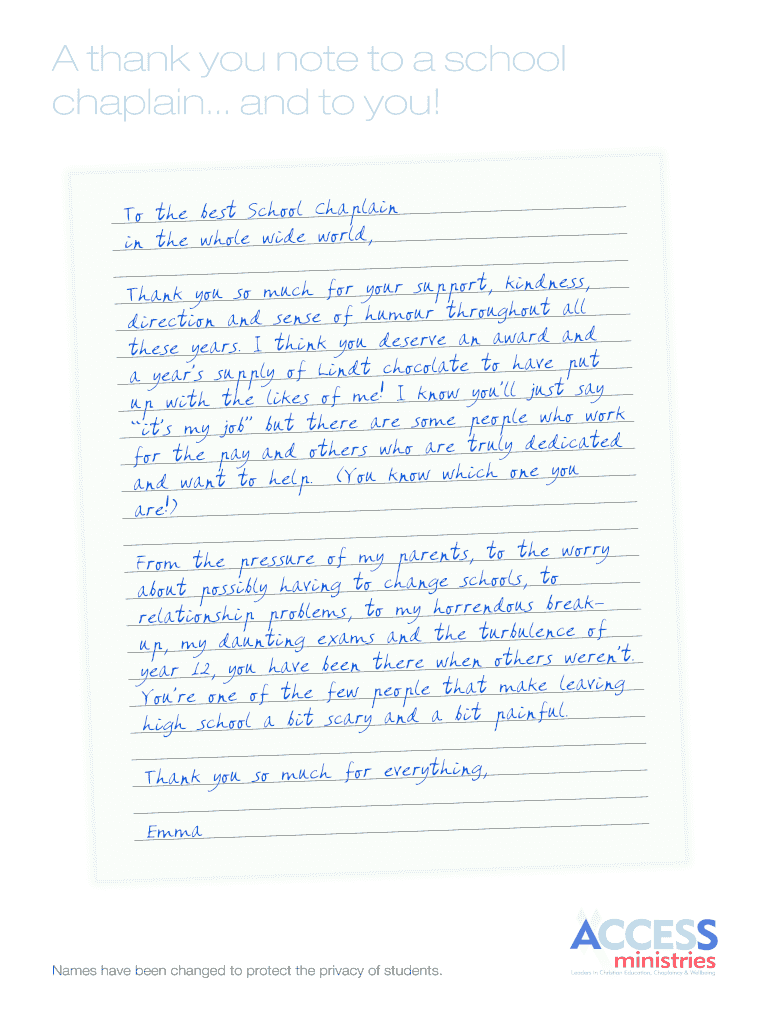 A thank you note to a school
chaplain... and to you!
To the best School Chaplain
in the whole wide world,
Thank you so much for your support, kindness,
direction and sense of humour throughout all
these years. I think you deserve an award and
a year's supply of Lindt chocolate to have put
up with the likes of me! I know you'll just say
“it's my job” but there are some people who work
for the pay and others who are truly dedicated
and want to help. (You know which one you
are!)
From the pressure of my parents, to the worry
about possibly having to change schools, to
relationship problems, to my horrendous break-
up, my daunting exams and the turbulence of
year 12, you have been there when others weren't.
You're one of the few people that make leaving
high school a bit scary and a bit painful.
Thank you so much for everything,
Emma
ACCESS
ministries
Leaders in Christian Education, Chaplaincy & Wellbeing
Names have been changed to protect the privacy of students.